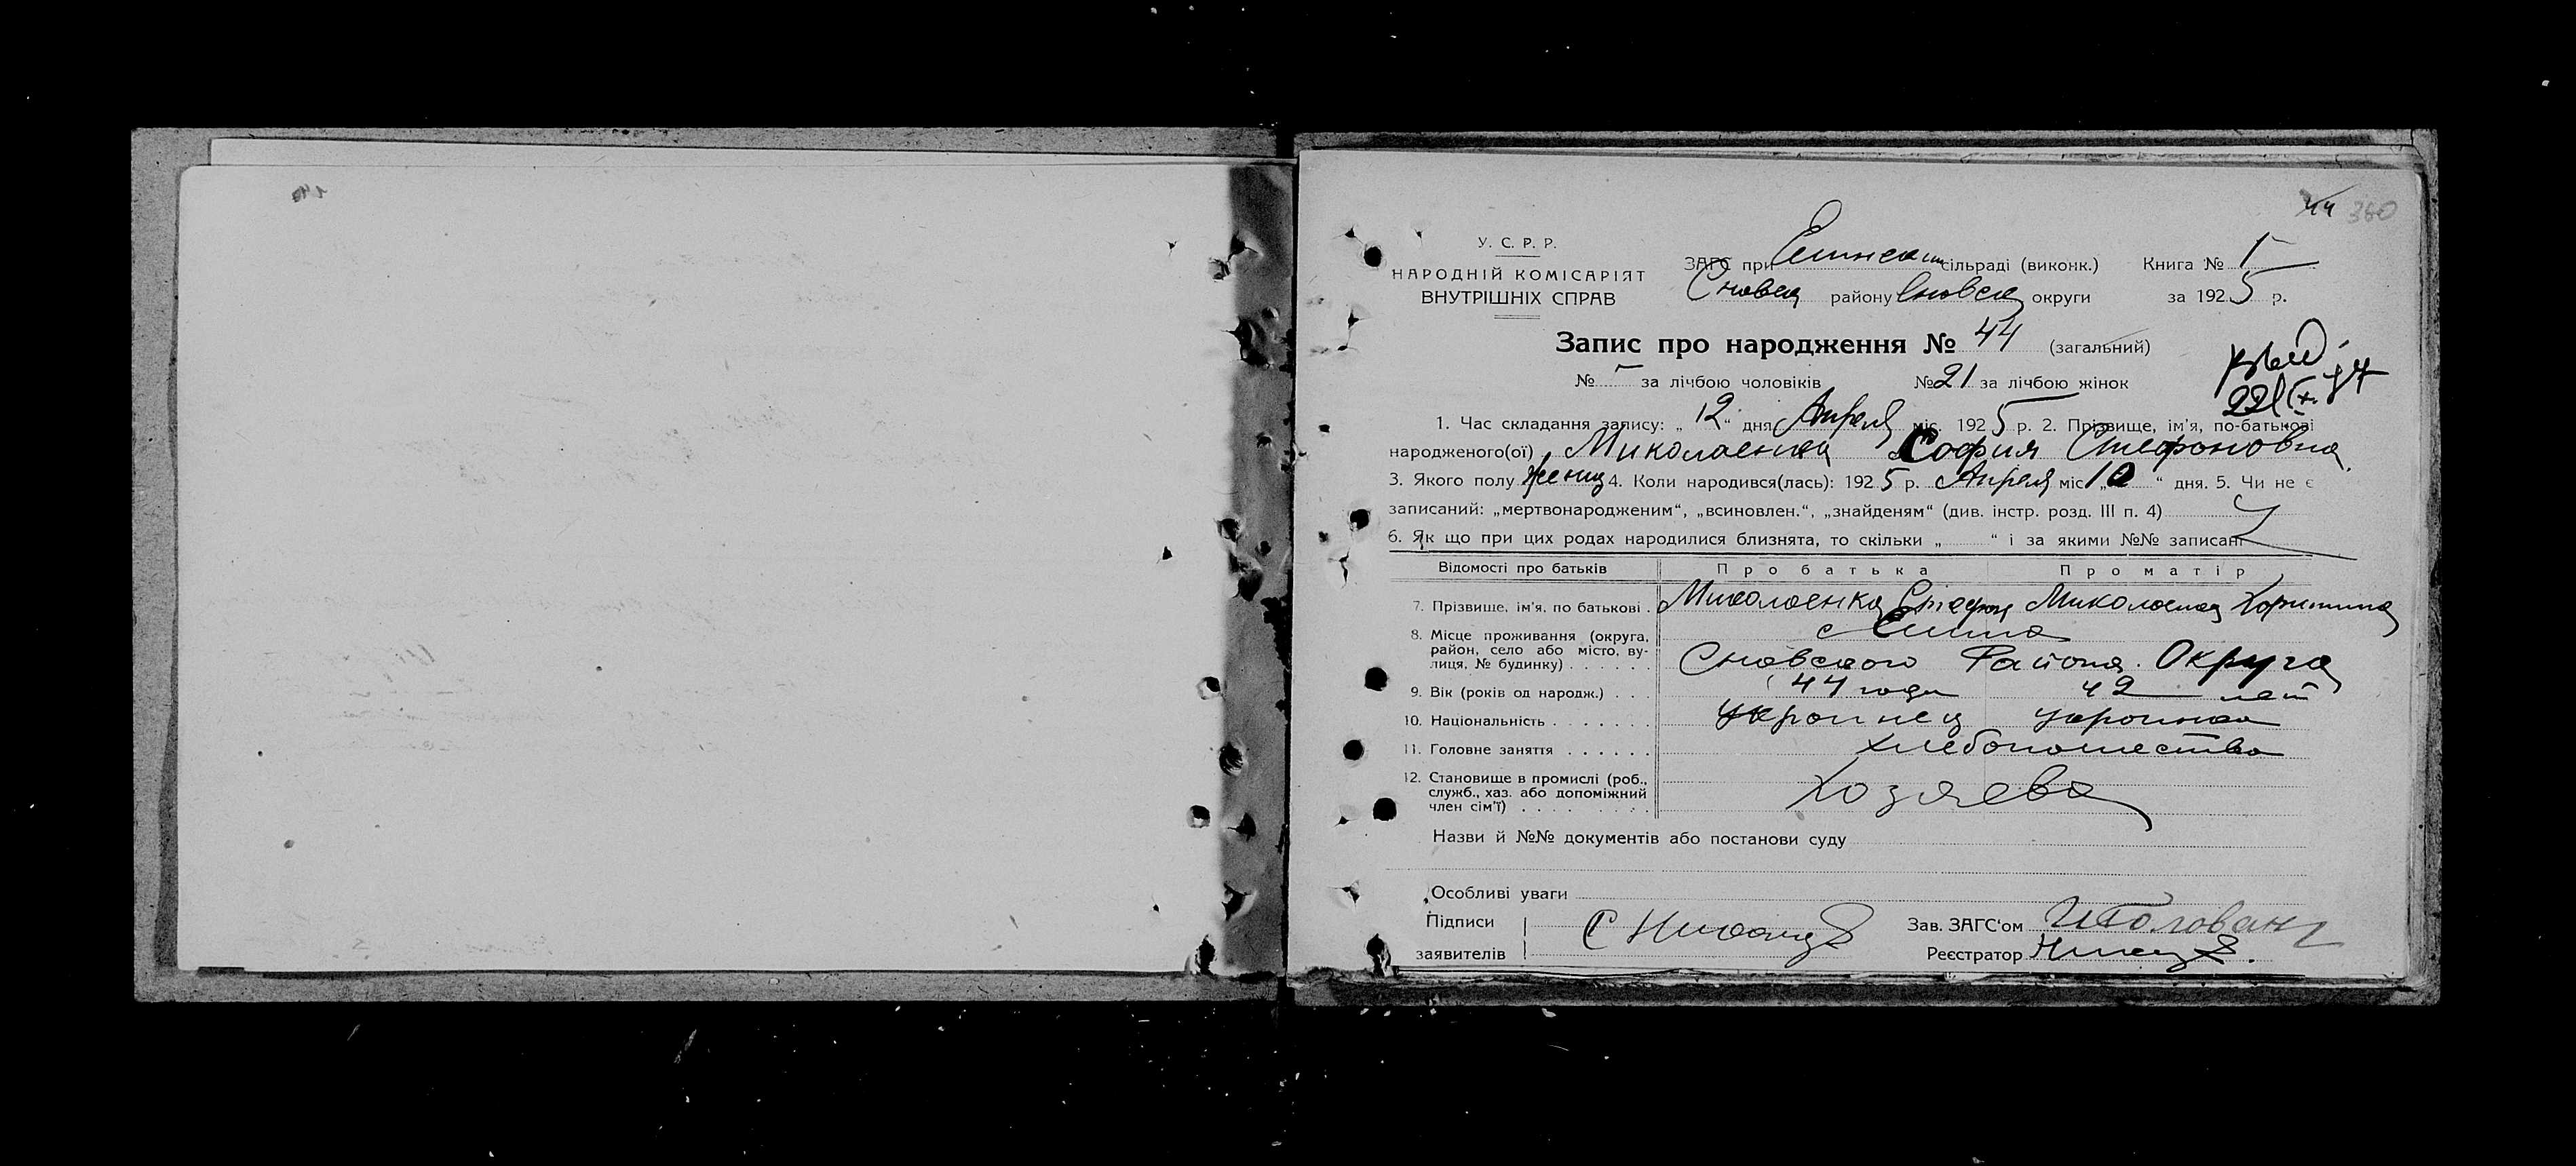 44 360
У. С. Р. Р.
НАРОДНІЙ КОМІСАРІЯТ
ВНУТРІШНІХ СПРАВ
ЗАГС при сільраді (виконк.) Книга № 1
Сновск району Сновск округи за 1925 р.
Запис про народження № 44 (загальний)
№ - за лічбою чоловіків № 21 за лічбою жінок
1. Час складання запису: „12“ дня Апреля міс. 1925 р. 2. Прізвище, ім'я, по-батькові
народженого(ої) Миколаенка София Стефоновна
3. Якого полу женщ 4. Коли народився(лась): 1925 р. Апреля міс „10“ дня. 5. Чи не є
записаний: „мертвонародженим“, „всиновлен.“, „знайденям“ (див. інстр. розд. III п. 4)
6. Як що при цих родах народилися близнята, то скільки „ “ і за якими №№ записані
Відомості про батьків Про батька Про матір
7. Прізвище, ім'я, по батькові . Миколаенка Стефон Миколаенка Харитина
8. Місце проживання (округа,
район, село або місто, ву-
лиця, № будинку) . . . . . .
Сновского Района. Округа
9. Вік (років од народж.) . . 44 года 42 лет
10. Національність . . . . . . . Украинец украинка
11. Головне заняття . . . . . . хлебопашество
12. Становище в промислі (роб.,
служб., хаз. або допоміжний
член сім'ї) . . . . . . . . Хозяева
Назви й №№ документів або постанови суду
Особливі уваги
Підписи
заявителів
Зав. ЗАГС'ом
Реєстратор